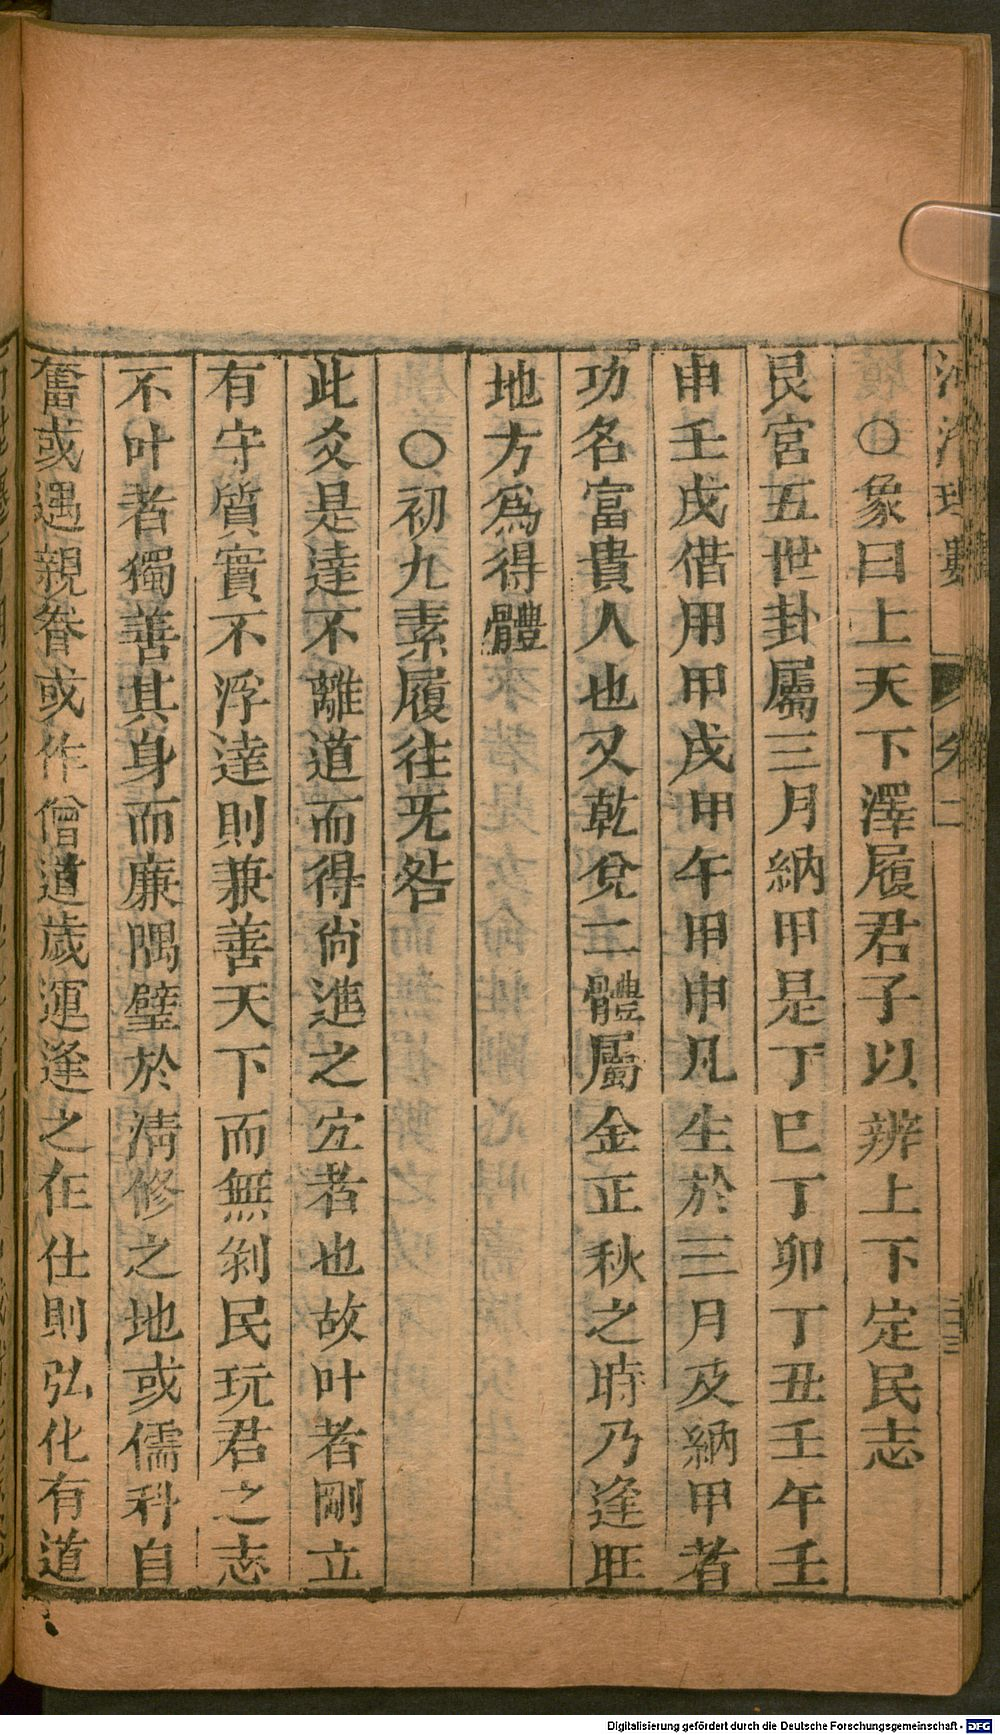 ○象曰上天下澤履君子以辨上下定民志
艮宮五世卦屬三月納甲是丁巳丁卯丁丑壬午壬
申壬戌借用甲戌甲午甲申凡生於三月及納甲者
功名富貴人也又乾兌二體屬金正秋之時乃逢旺
地方為得體
○初九素履往旡咎
此爻是達不離道而得尚進之宜者也故叶者剛立
有守質實不浮達則兼善天下而無剝民玩君之志
不叶者獨善其身而廉隅璧於清修之地或儒科自
奮或遇親眷或作僧道歲運逢之在仕則弘化有道
卷二
Digitalisierung gefördert durch die Deutsche Forschungsgemeinschaft - DFG